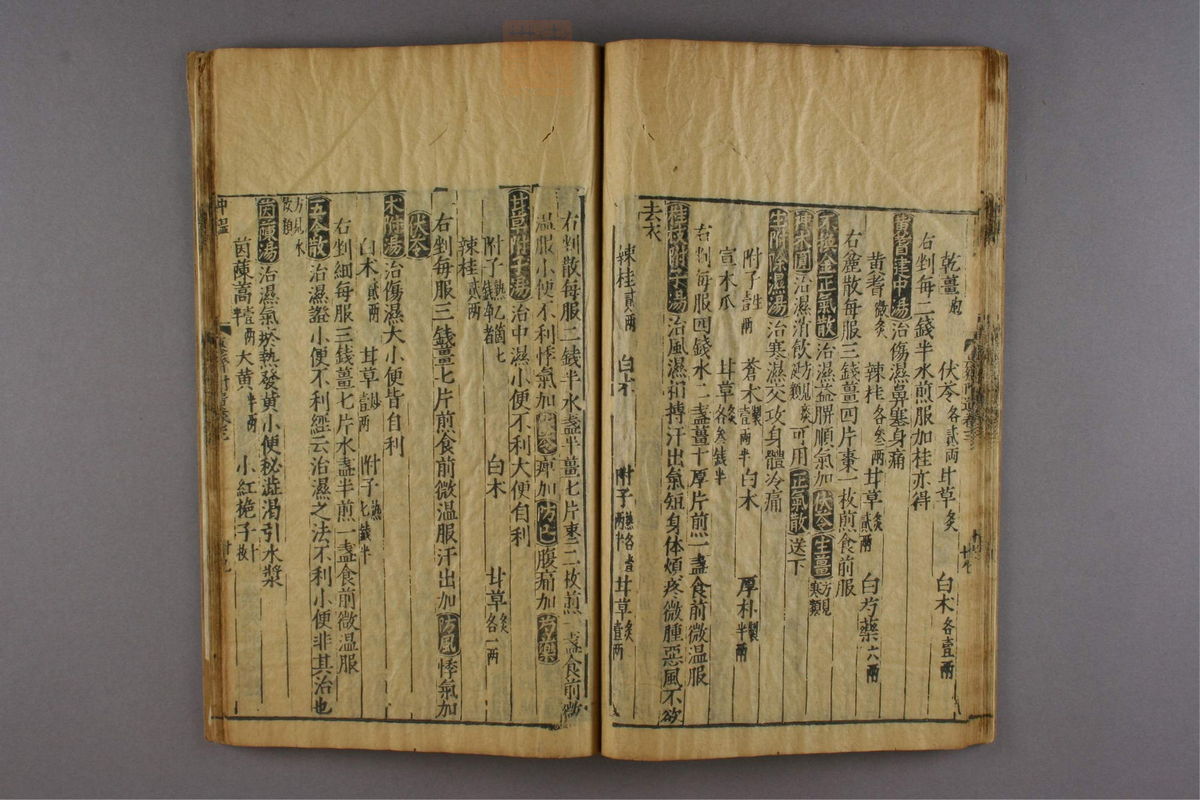 乾薑炮 伏苓各貳兩 甘草炙 白朮各壹兩
右剉每二錢半水煎服加桂亦得
黃耆建中湯治傷濕鼻塞身痛
黃耆微炙 辣桂各叁兩 甘草炙貳兩 白芍藥六兩
右麄散每服三錢薑四片棗一枚煎食前服
不換金正氣散治濕益脾順氣加伏苓生薑方見寒類
朮圓治濕消飲方見類可用正氣散送下
生附除濕湯治寒濕交攻身體冷痛
附子生壹兩 蒼朮製壹兩半 白朮 厚朴製半兩
宣木瓜 甘草炙各叁錢半
右剉每服四錢水二盞薑十厚片煎一盞食前微溫服
桂枝附子湯治風濕相搏汗出氣短身体煩疼微腫惡風不欲
去衣
辣桂貳兩 白朮 附子熟各壹兩半 甘草炙壹兩
右剉散每服二錢半水盞半薑七片棗二枚煎一盞食前微
溫服小便不利悸氣加伏苓痺加防已腹痛加芍藥
甘草附子湯治中濕小便不利大便自利
附子熟 白朮 甘草炙各一兩
辣桂貳兩
右剉每服三錢薑七片煎食前微溫服汗出加防風悸氣加
伏苓
朮附湯治傷濕大小便皆自利
白朮貳兩 甘草炒壹兩 附子熟七錢半
右剉細每服三錢薑七片水盞半煎一盞食前微溫服
五苓散治濕證小便不利經云治濕之法不利小便非其治也
方見水飲類
茵蔯湯治濕氣瘀熱發黃小便秘澁渴引水漿
茵蔯蒿壹兩半 大黃半兩 小紅梔子十枚
中濕